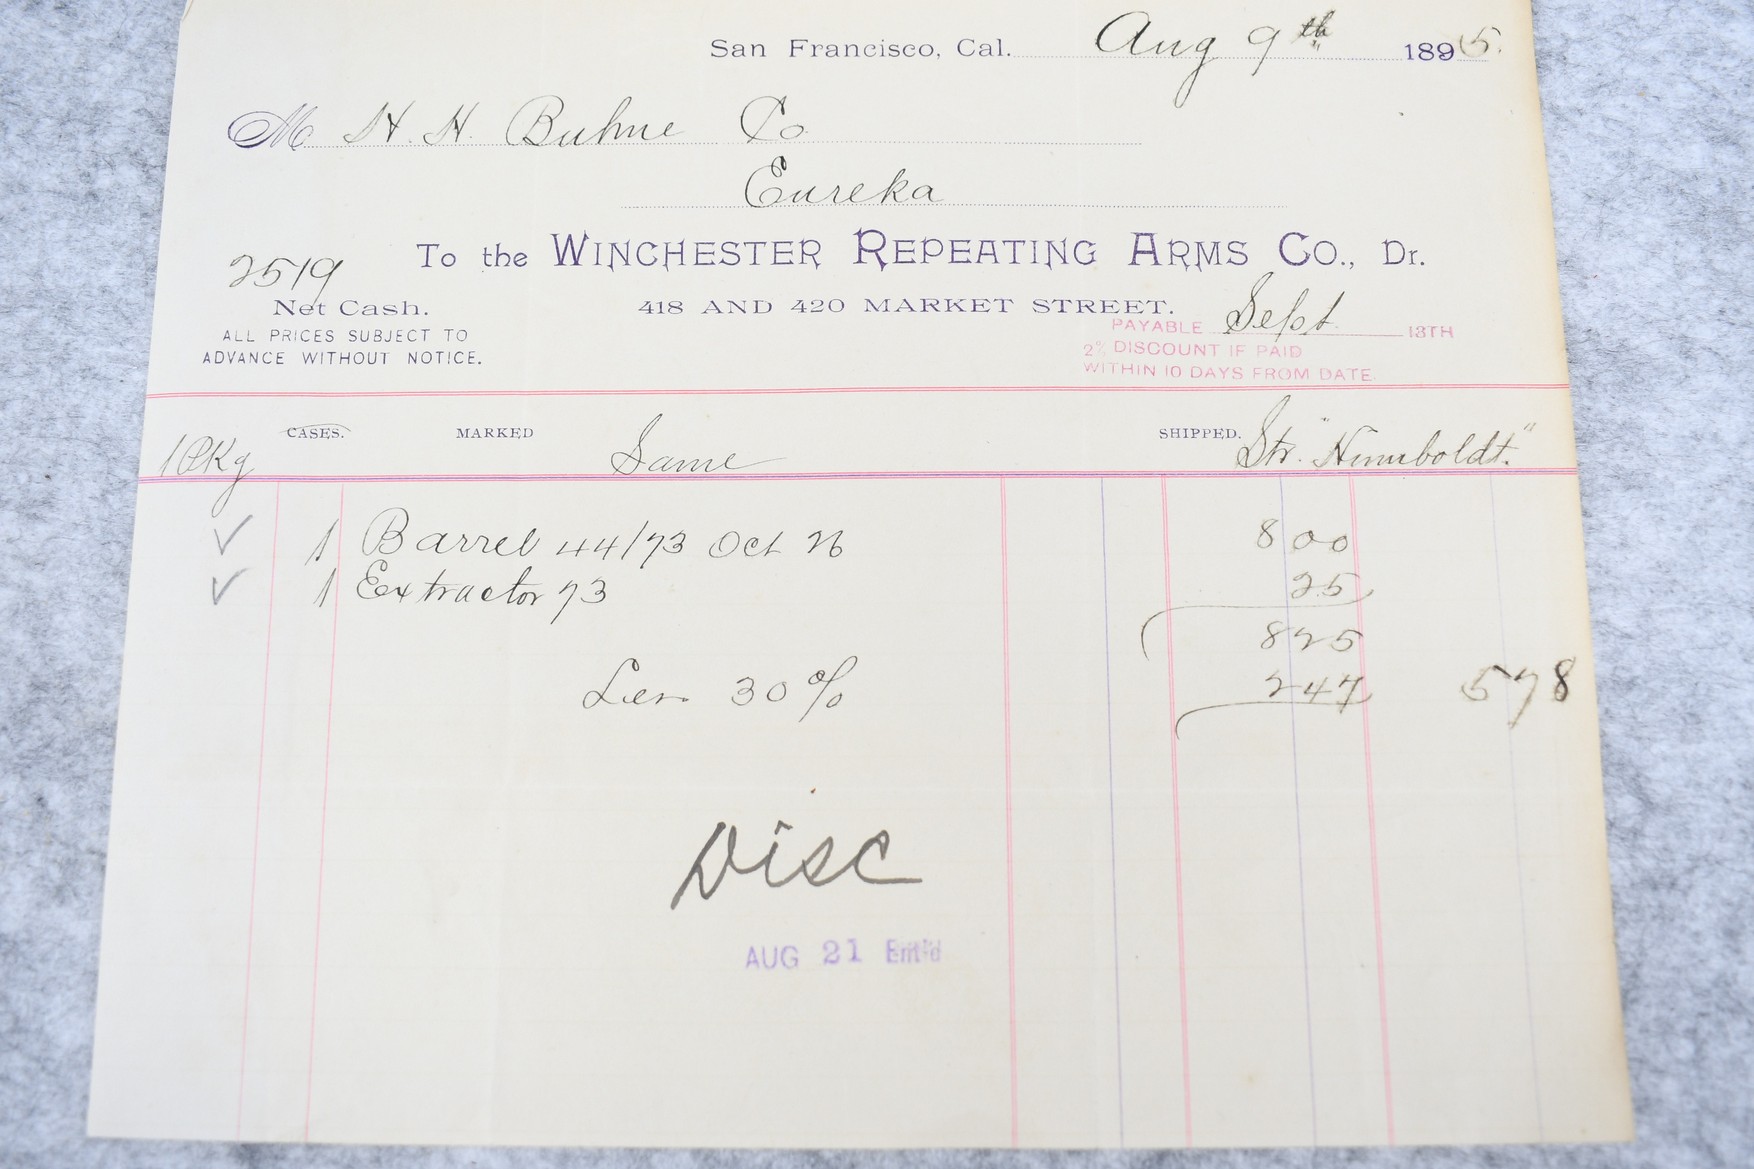 San Francisco, Cal. Aug 9th 1895.
M H. H. Buhne Co
Eureka
2519
To the WINCHESTER REPEATING ARMS CO., Dr.
Net Cash.
418 AND 420 MARKET STREET.
ALL PRICES SUBJECT TO
ADVANCE WITHOUT NOTICE.
PAYABLE Sept 13TH
2% DISCOUNT IF PAID
WITHIN 10 DAYS FROM DATE.
1 Pkg CASES. MARKED Same SHIPPED. Str. "Humboldt."
✓ 1 Barrel 44/73 Oct 26 8 00
✓ 1 Extractor 73 25
8 25
Less 30% 2 47 5 78
Disc
AUG 21 Ent'd